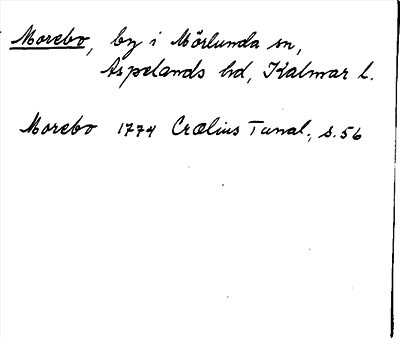 Morebo, by i Mörlunda sn,
Aspelands hd, Kalmar l.
Morebo 1774 Crælius Tunal., s. 56